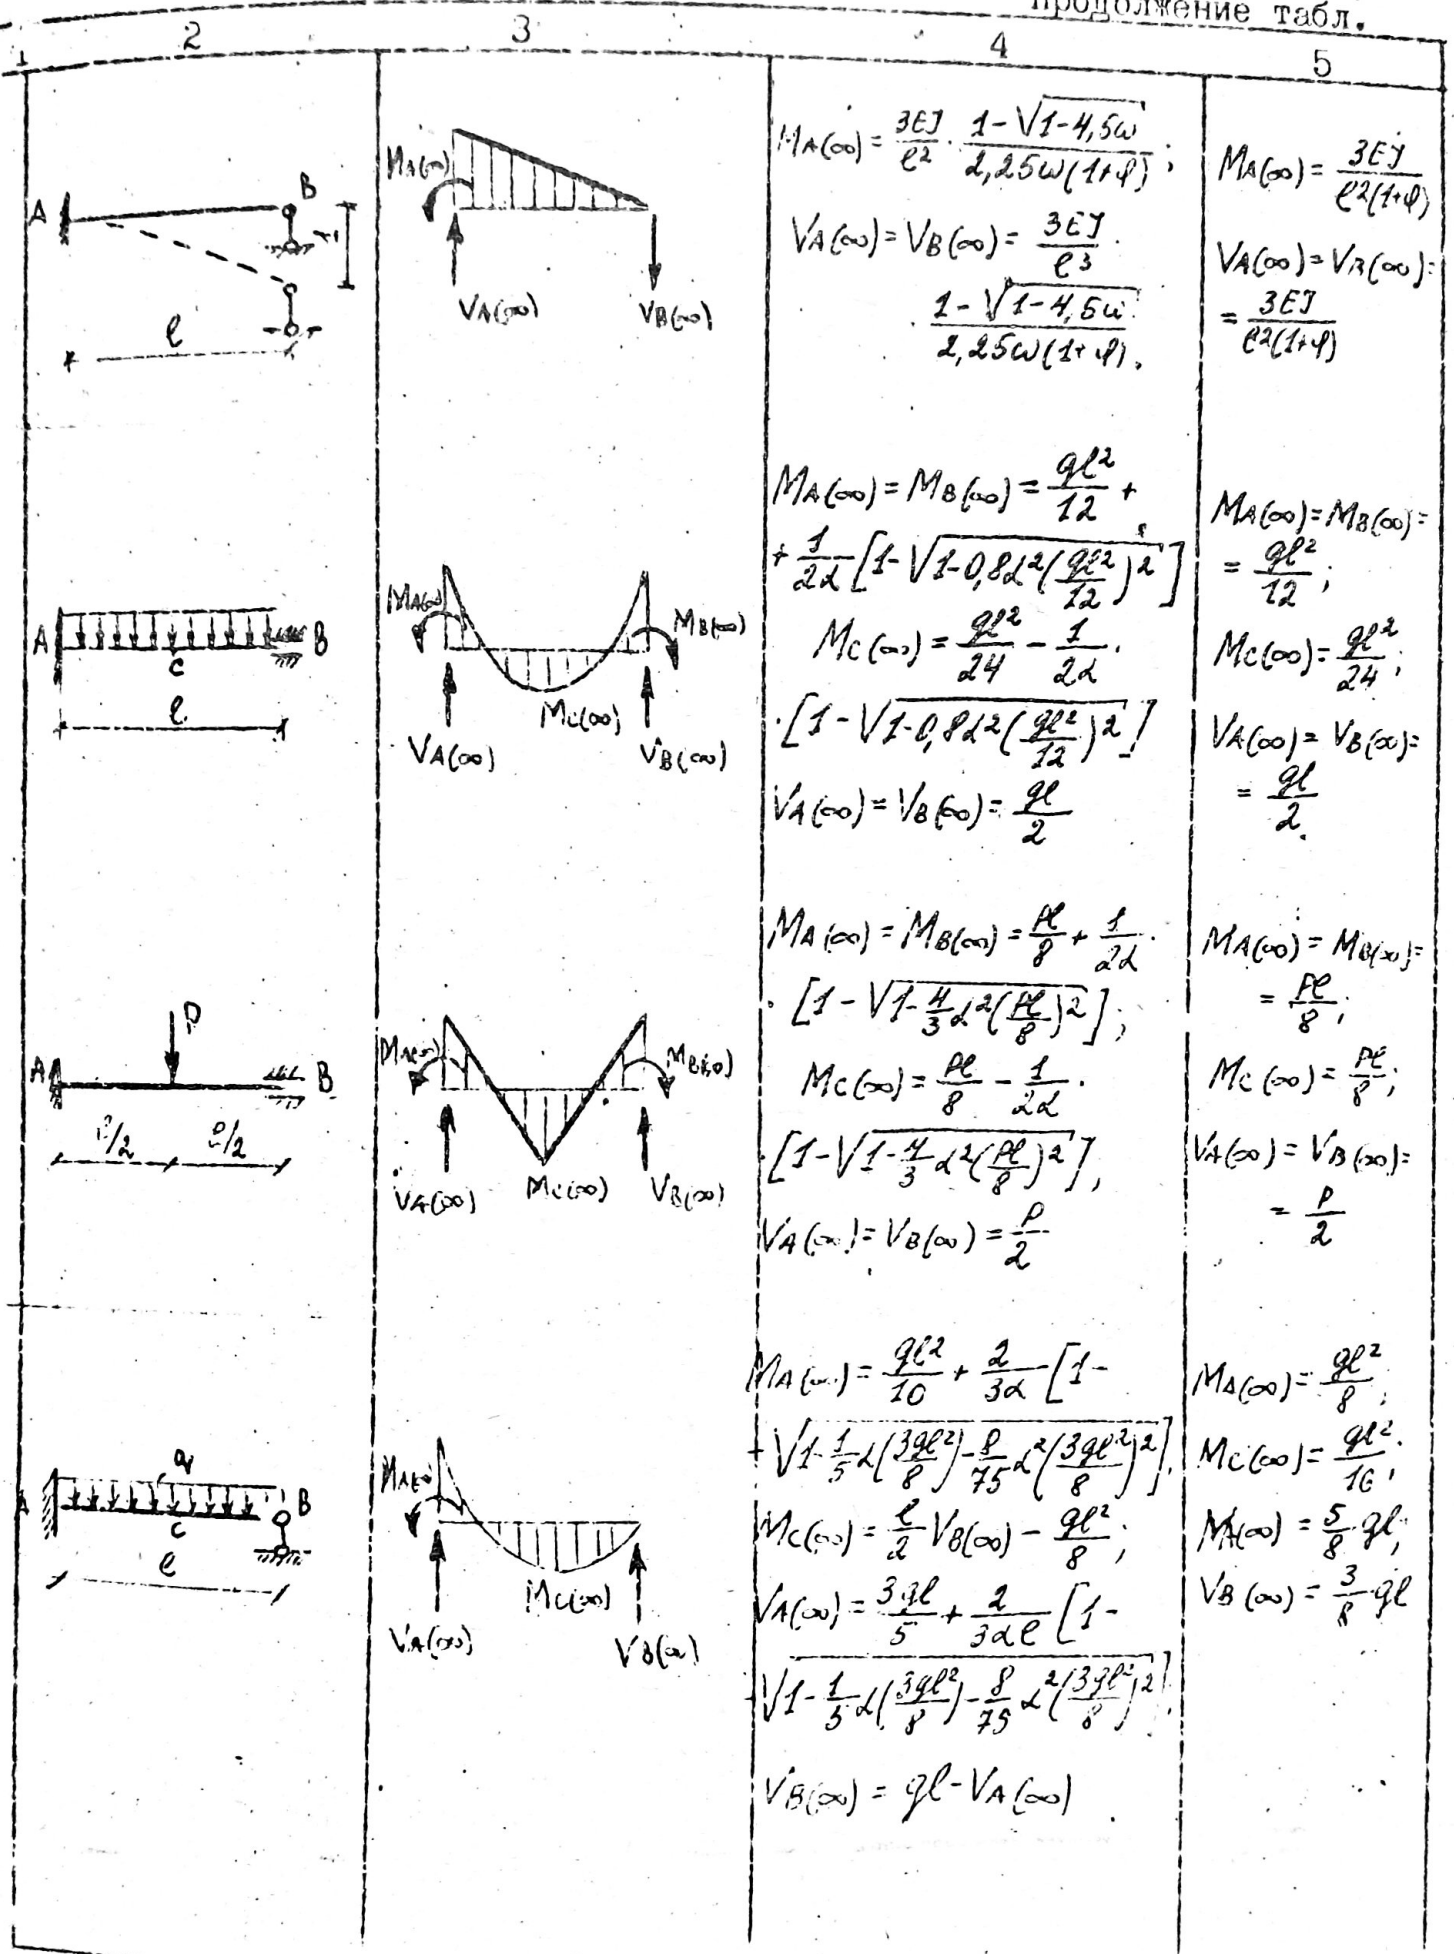 продолжение табл.
1 2 3 4 5
A B
l
M_A(∞)
V_A(∞) V_B(∞)
M_A(∞) = 3EJ/l² · (1-√(1-4,5ω))/(2,25ω(1+φ));
V_A(∞) = V_B(∞) = 3EJ/l³ ·
· (1-√(1-4,5ω))/(2,25ω(1+φ)).
M_A(∞) = 3EJ/(l²(1+φ))
V_A(∞) = V_B(∞) =
= 3EJ/(l²(1+φ))
A C B
l
M_A(∞) M_B(∞)
M_C(∞)
V_A(∞) V_B(∞)
M_A(∞) = M_B(∞) = ql²/12 +
+ 1/2α [1-√(1-0,8α²(ql²/12)²)]
M_C(∞) = ql²/24 - 1/2α ·
· [1-√(1-0,8α²(ql²/12)²)]
V_A(∞) = V_B(∞) = ql/2
M_A(∞) = M_B(∞) =
= ql²/12;
M_C(∞) = ql²/24;
V_A(∞) = V_B(∞) =
= ql/2.
P
A B
l/2 l/2
M_A(∞) M_B(∞)
V_A(∞) M_C(∞) V_B(∞)
M_A(∞) = M_B(∞) = Pl/8 + 1/2α ·
· [1-√(1-4/3 α²(Pl/8)²)];
M_C(∞) = Pl/8 - 1/2α ·
· [1-√(1-4/3 α²(Pl/8)²)],
V_A(∞) = V_B(∞) = P/2
M_A(∞) = M_B(∞) =
= Pl/8;
M_C(∞) = Pl/8;
V_A(∞) = V_B(∞) =
= P/2
q
A C B
l
M_A(∞)
M_C(∞)
V_A(∞) V_B(∞)
M_A(∞) = ql²/10 + 2/3α [1-
-√(1-1/5 α(3ql²/8)-8/75 α²(3ql²/8)²)].
M_C(∞) = l/2 V_B(∞) - ql²/8;
V_A(∞) = 3ql/5 + 2/3αl [1-
-√(1-1/5 α(3ql²/8)-8/75 α²(3ql²/8)²)].
V_B(∞) = ql-V_A(∞)
M_A(∞) = ql²/8;
M_C(∞) = ql²/16;
(∞) = 5/8 ql;
V_B(∞) = 3/8 ql